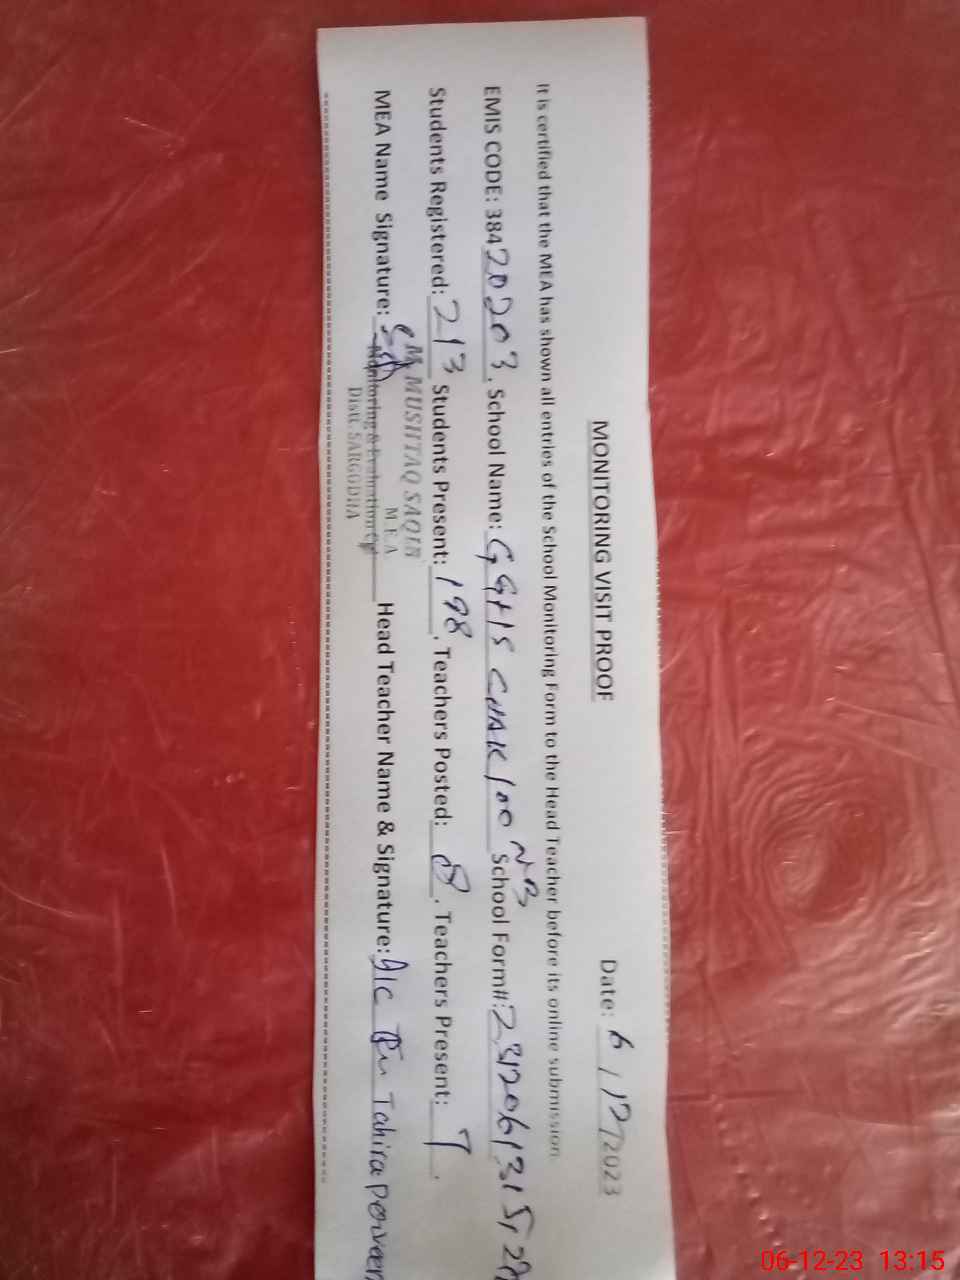 MONITORING VISIT PROOF
Date: 6/12/2023
It is certified that the MEA has shown all entries of the School Monitoring Form to the Head Teacher before its online submission.
EMIS CODE: 38420203. School Name: GGHS CHAK 100 NB School Form#:
Students Registered: 213 Students Present: 198. Teachers Posted: 8. Teachers Present: 7.
MEA Name Signature: Head Teacher Name & Signature: I/C Tahira Perveen
M. MUSHTAQ SAQIB
M.E.A
Monitoring & Evaluation
Distt. SARGODHA
06-12-23 13:15